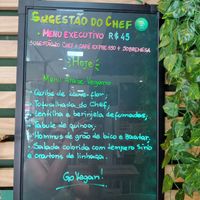 SUGESTÃO DO CHEF
• MENU EXECUTIVO R$45
SUGESTÃO DO CHEF + CAFÉ EXPRESSO + SOBREMESA
Hoje
Menu Árabe Vegano
• Quibe de couve-flor,
• Tofusalhada do Chef,
• Lentilha e berinjela defumadas,
• Tabule de quinoa,
• Hommus de grão de bico e
• Salada colorida com tempero sírio
e croutons de linhaça.
Go Vegan!